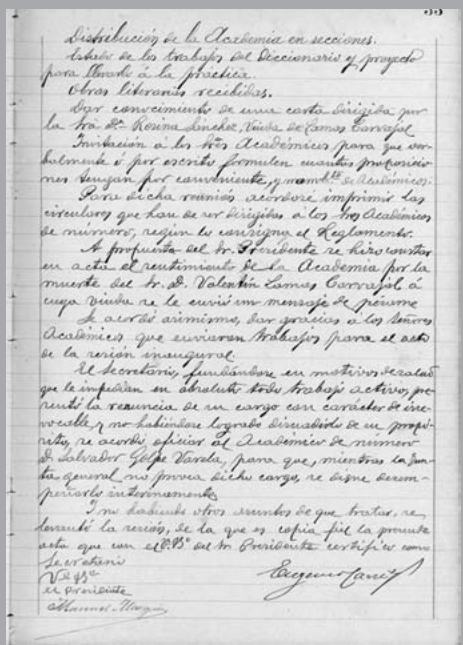 33
Distribución de la Academia en secciones.
Estado de los trabajos del Diccionario y proyecto
para llevarlo á la práctica.
Obras literarias recibidas.
Dar conocimiento de una carta dirigida por
la Sra. Dª. Rosina Sánchez, Viuda de Lamas Carvajal
Invitación á los Sres Académicos para que ver-
balmente ó por escrito formulen cuantas proposicio
nes tengan por conveniente, y de Académicos.
Para dicha reunión acordose imprimir las
circulares que han de ser dirigidas á los Sres Académicos
de número, según lo consigna el Reglamento.
A propuesta del Sr. Presidente se hizo constar
en acta el sentimiento de la Academia por la
muerte del Sr. D. Valentin Lamas Carvajal á
cuya viuda se le envió un mensaje de pésame
Se acordó asimismo, dar gracias á los Señores
Académicos que enviaran trabajos para el acto
de la sesión inaugural.
El Secretario, fundándose en motivos de salud
que le impedian en absoluto todo trabajo activo, pre
sentó la renuncia de su cargo con carácter de irre
vocable, y no habiendose logrado disuadirlo de su propó-
sito, se acordó oficiar al Académico de número
D. Salvador Golpe Varela, para que, mientras la Jun
ta general no provea dicho cargo, se digne desem-
peñarlo interinamente
Y no habiendo otros asuntos de que tratar, se
levantó la sesión, de la que es copia fiel la presente
acta que con el Vº. Bº. del Sr Presidente certifico como
Secretario
Vº Bº
El Presidente
Eugenio Carré
Manuel Murguía